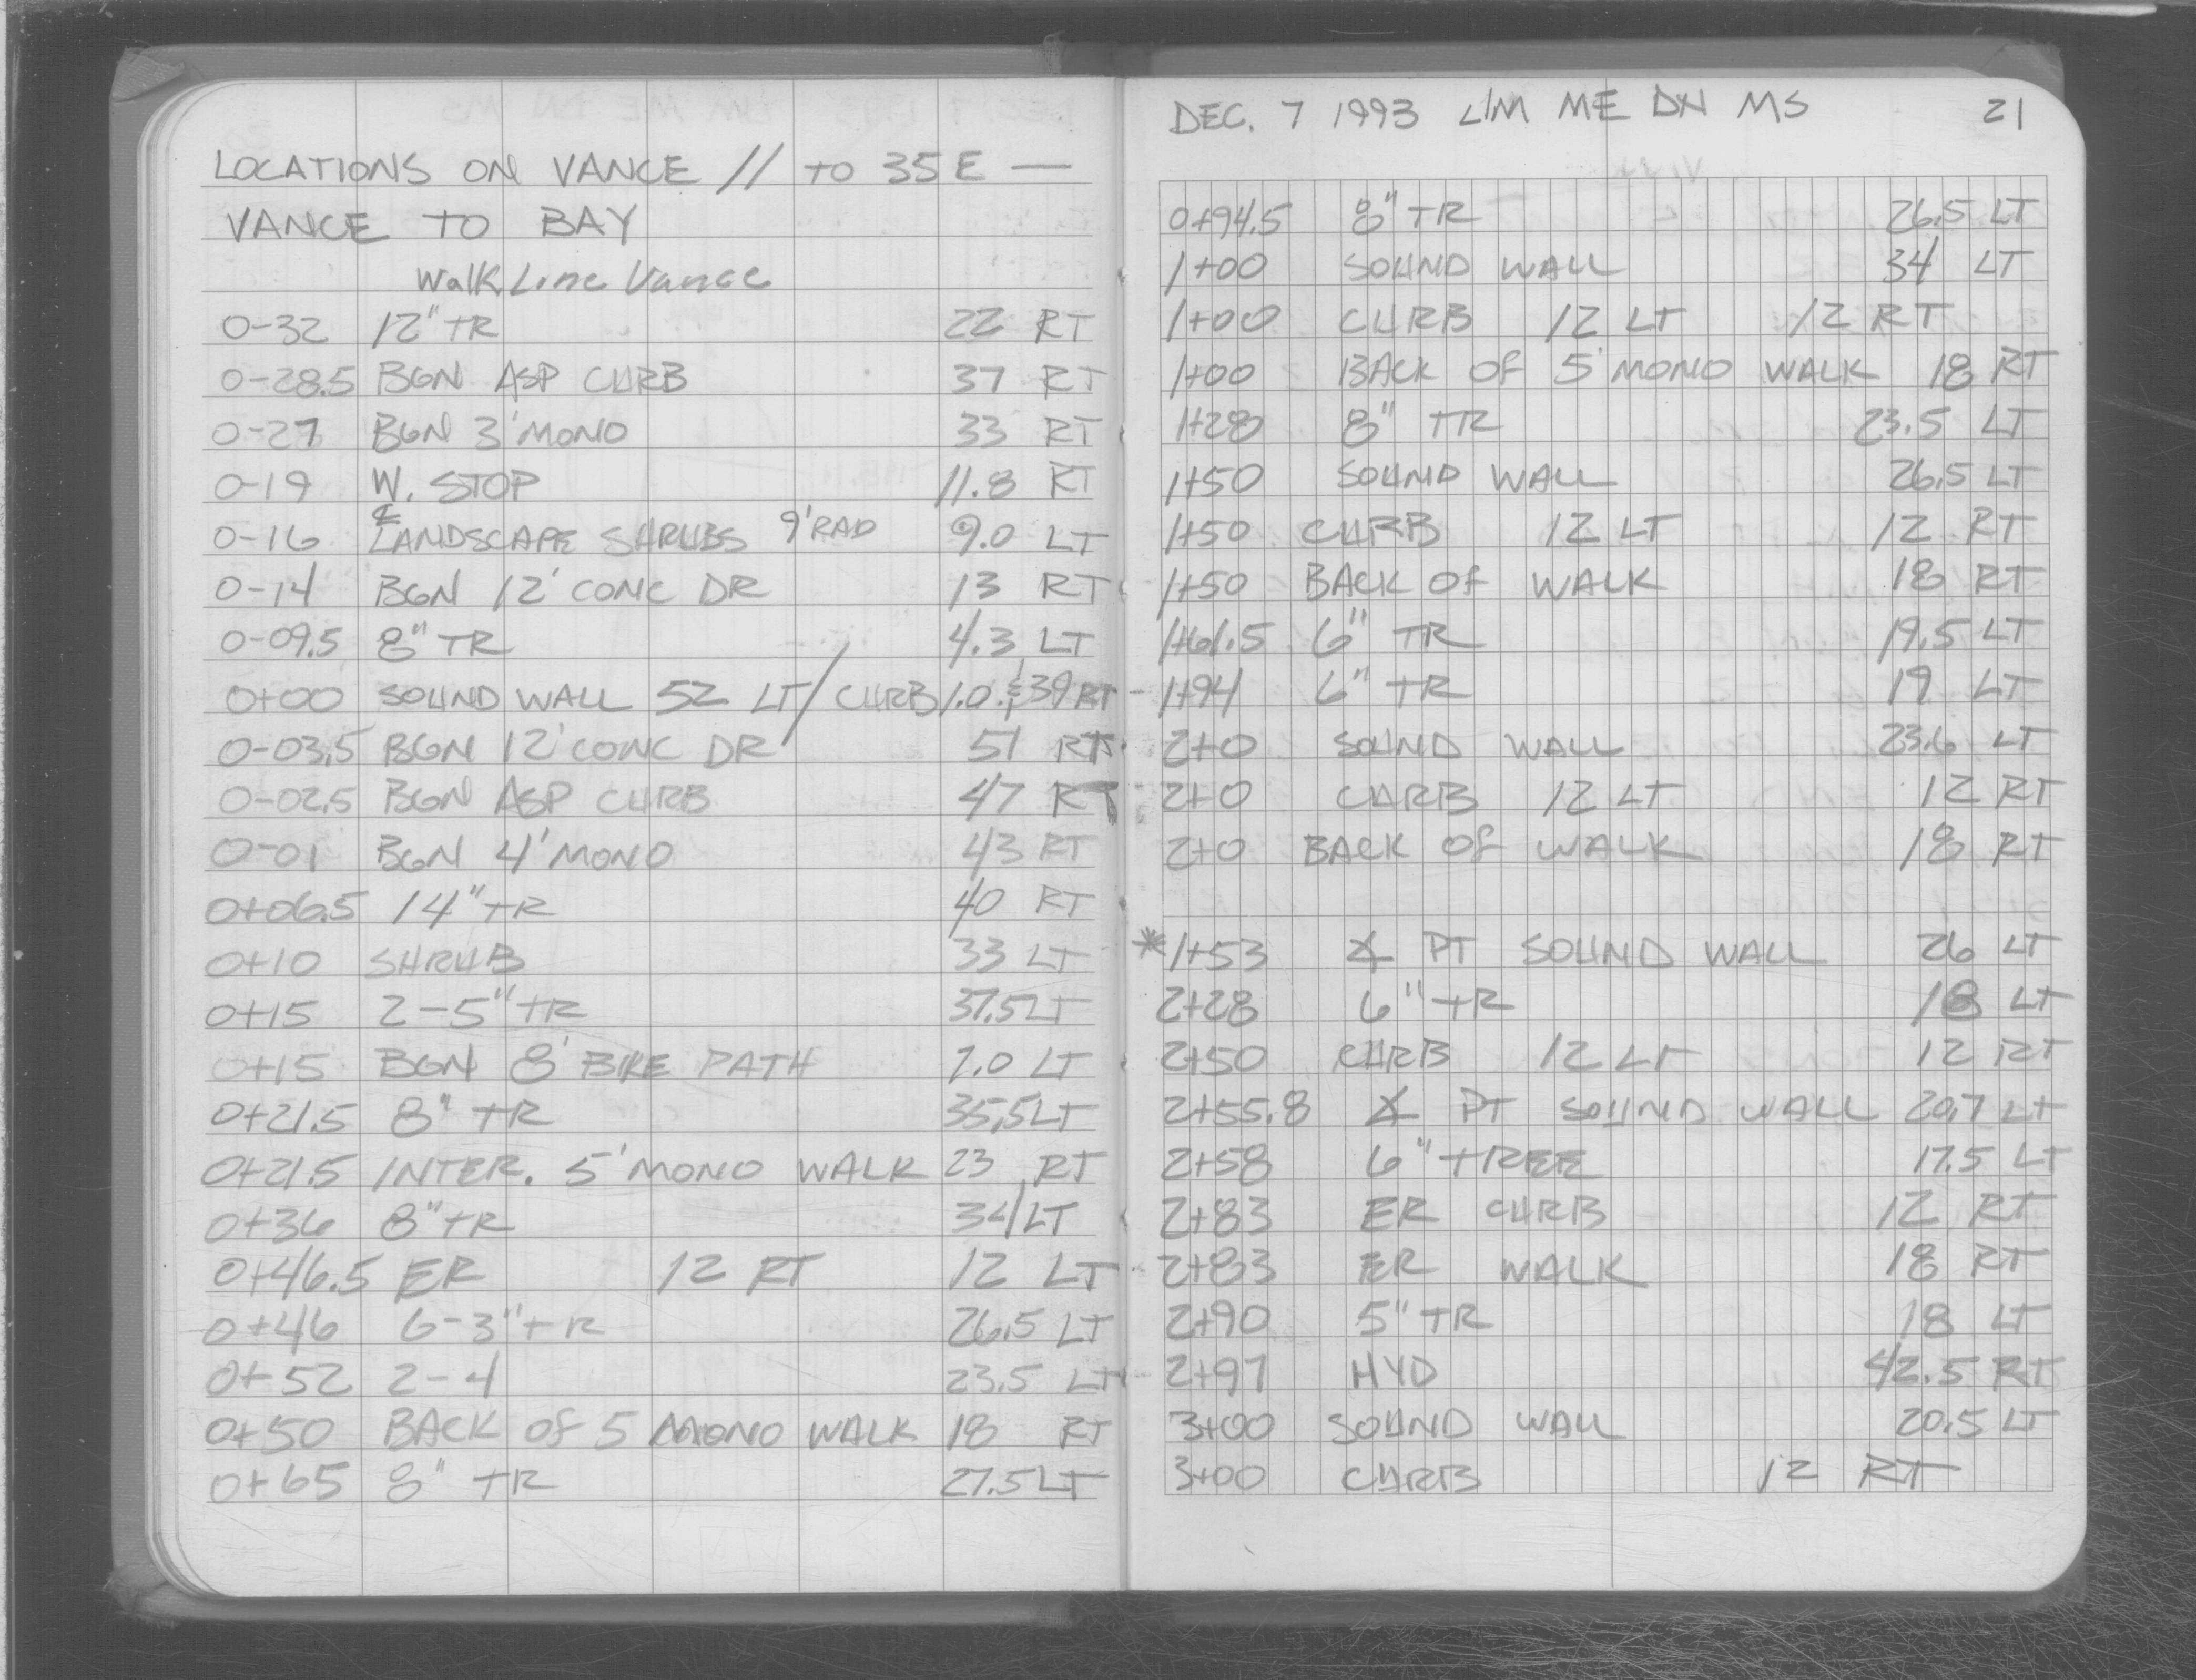 LOCATIONS ON VANCE // TO 35E —
VANCE TO BAY
Walk Line Vance
0-32 12" TR 22 RT
0-28.5 BGN ASP CURB 37 RT
0-27 BGN 3' MONO 33 RT
0-19 W. STOP 11.8 RT
0-16 ℄ LANDSCAPE SHRUBS 9' RAD 9.0 LT
0-14 BGN 12' CONC DR 13 RT
0-09.5 8" TR 4.3 LT
0+00 SOUND WALL 52 LT / CURB 1.0 & 39 RT
0-03.5 BGN 12' CONC DR 51 RT
0-02.5 BGN ASP CURB 47 RT
0-01 BGN 4' MONO 43 RT
0+06.5 14" TR 40 RT
0+10 SHRUB 33 LT
0+15 2-5" TR 37.5 LT
0+15 BGN 8' BIKE PATH 7.0 LT
0+21.5 8" TR 35.5 LT
0+21.5 INTER. 5' MONO WALK 23 RT
0+36 8" TR 34 LT
0+46.5 ER 12 RT 12 LT
0+46 6-3" TR 26.5 LT
0+52 2-4 23.5 LT
0+50 BACK OF 5 MONO WALK 18 RT
0+65 8" TR 27.5 LT
DEC. 7 1993 LIM ME DN MS 21
0+94.5 8" TR 26.5 LT
1+00 SOUND WALL 34 LT
1+00 CURB 12 LT 12 RT
1+00 BACK OF 5' MONO WALK 18 RT
1+28 8" TR 23.5 LT
1+50 SOUND WALL 26.5 LT
1+50 CURB 12 LT 12 RT
1+50 BACK OF WALK 18 RT
1+61.5 6" TR 19.5 LT
1+94 6" TR 19 LT
2+0 SOUND WALL 23.6 LT
2+0 CURB 12 LT 12 RT
2+0 BACK OF WALK 18 RT
*1+53 ∡ PT SOUND WALL 26 LT
2+28 6" TR 18 LT
2+50 CURB 12 LT 12 RT
2+55.8 ∡ PT SOUND WALL 20.7 LT
2+58 6" TREE 17.5 LT
2+83 ER CURB 12 RT
2+83 ER WALK 18 RT
2+90 5" TR 18 LT
2+97 HYD 42.5 RT
3+00 SOUND WALL 20.5 LT
3+00 CURB 12 RT